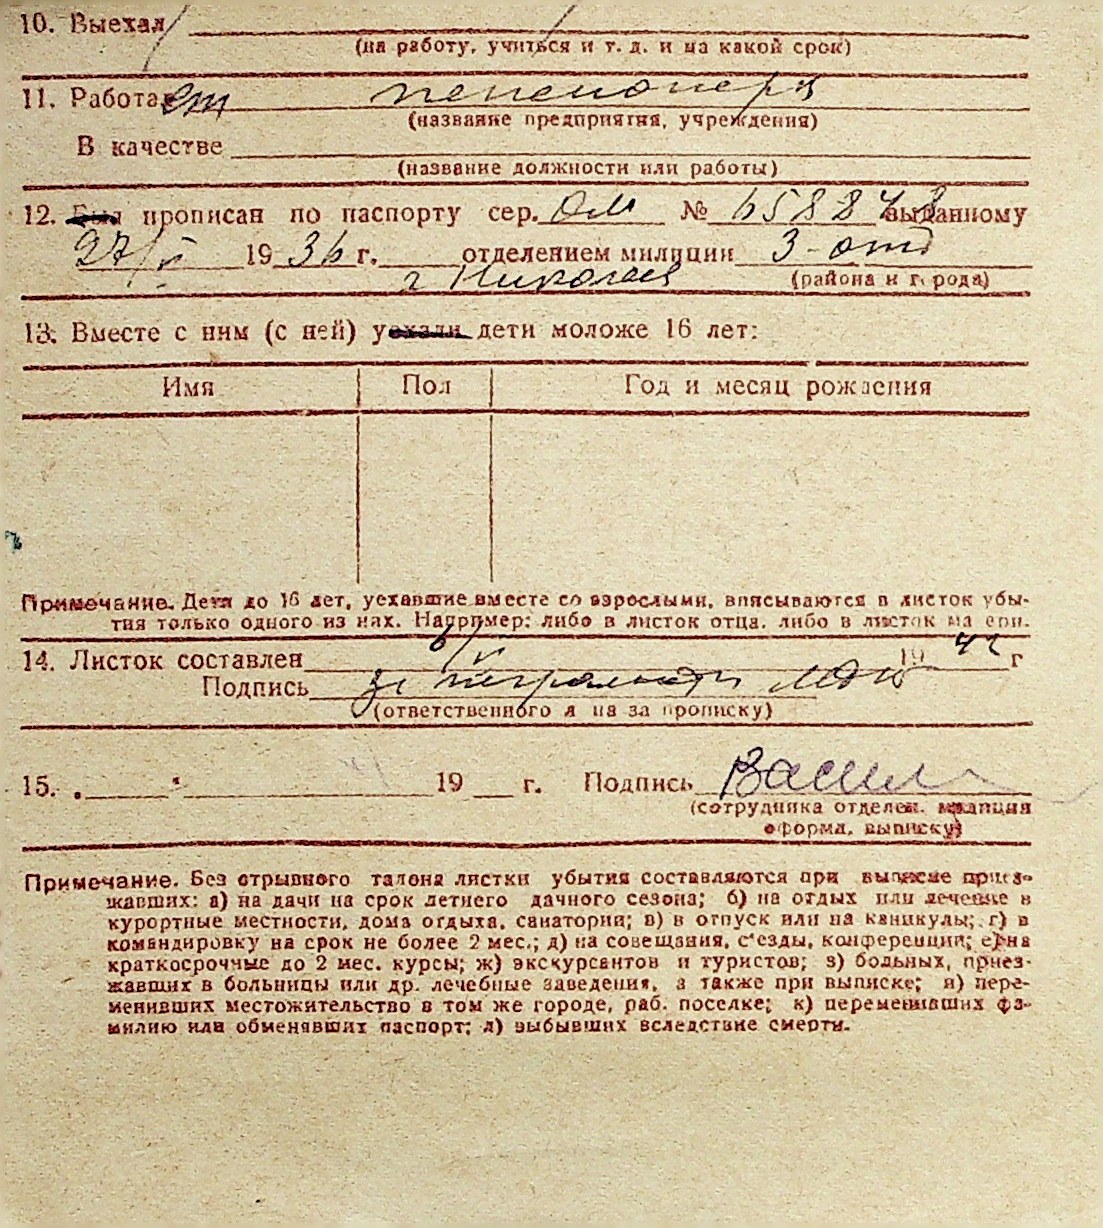 10. Выехал
(на работу, учиться и т. д. и на какой срок)
11. Работает пенсионерка
(название предприятия, учреждения)
В качестве
(название должности или работы)
12. прописан по паспорту сер. ОМ № 658848 выданному
27/V 1936 г. отделением милиции 3-отд
г Николаев (района и города)
13. Вместе с ним (с ней) уехали дети моложе 16 лет:
Имя Пол Год и месяц рождения
Примечание. Дети до 16 лет, уехавшие вместе со взрослыми, вписываются в листок убы-
тия только одного из них. Например: либо в листок отца, либо в листок матери.
14. Листок составлен 6/V 1942 г
Подпись
(ответственного л на за прописку)
15. „ " 19 г. Подпись Васил
(сотрудника отделен. милиции
оформл. выписку)
Примечание. Без отрывного талона листки убытия составляются при выписке приез-
жавших: а) на дачи на срок летнего дачного сезона; б) на отдых или лечение в
курортные местности, дома отдыха, санатории; в) в отпуск или на каникулы; г) в
командировку на срок не более 2 мес.; д) на совещания, с'езды, конференции; е) на
краткосрочные до 2 мес. курсы; ж) экскурсантов и туристов; з) больных, приез-
жавших в больницы или др. лечебные заведения, а также при выписке; и) пере-
менивших местожительство в том же городе, раб. поселке; к) переменивших фа-
милию или обменявших паспорт; л) выбывших вследствие смерти.